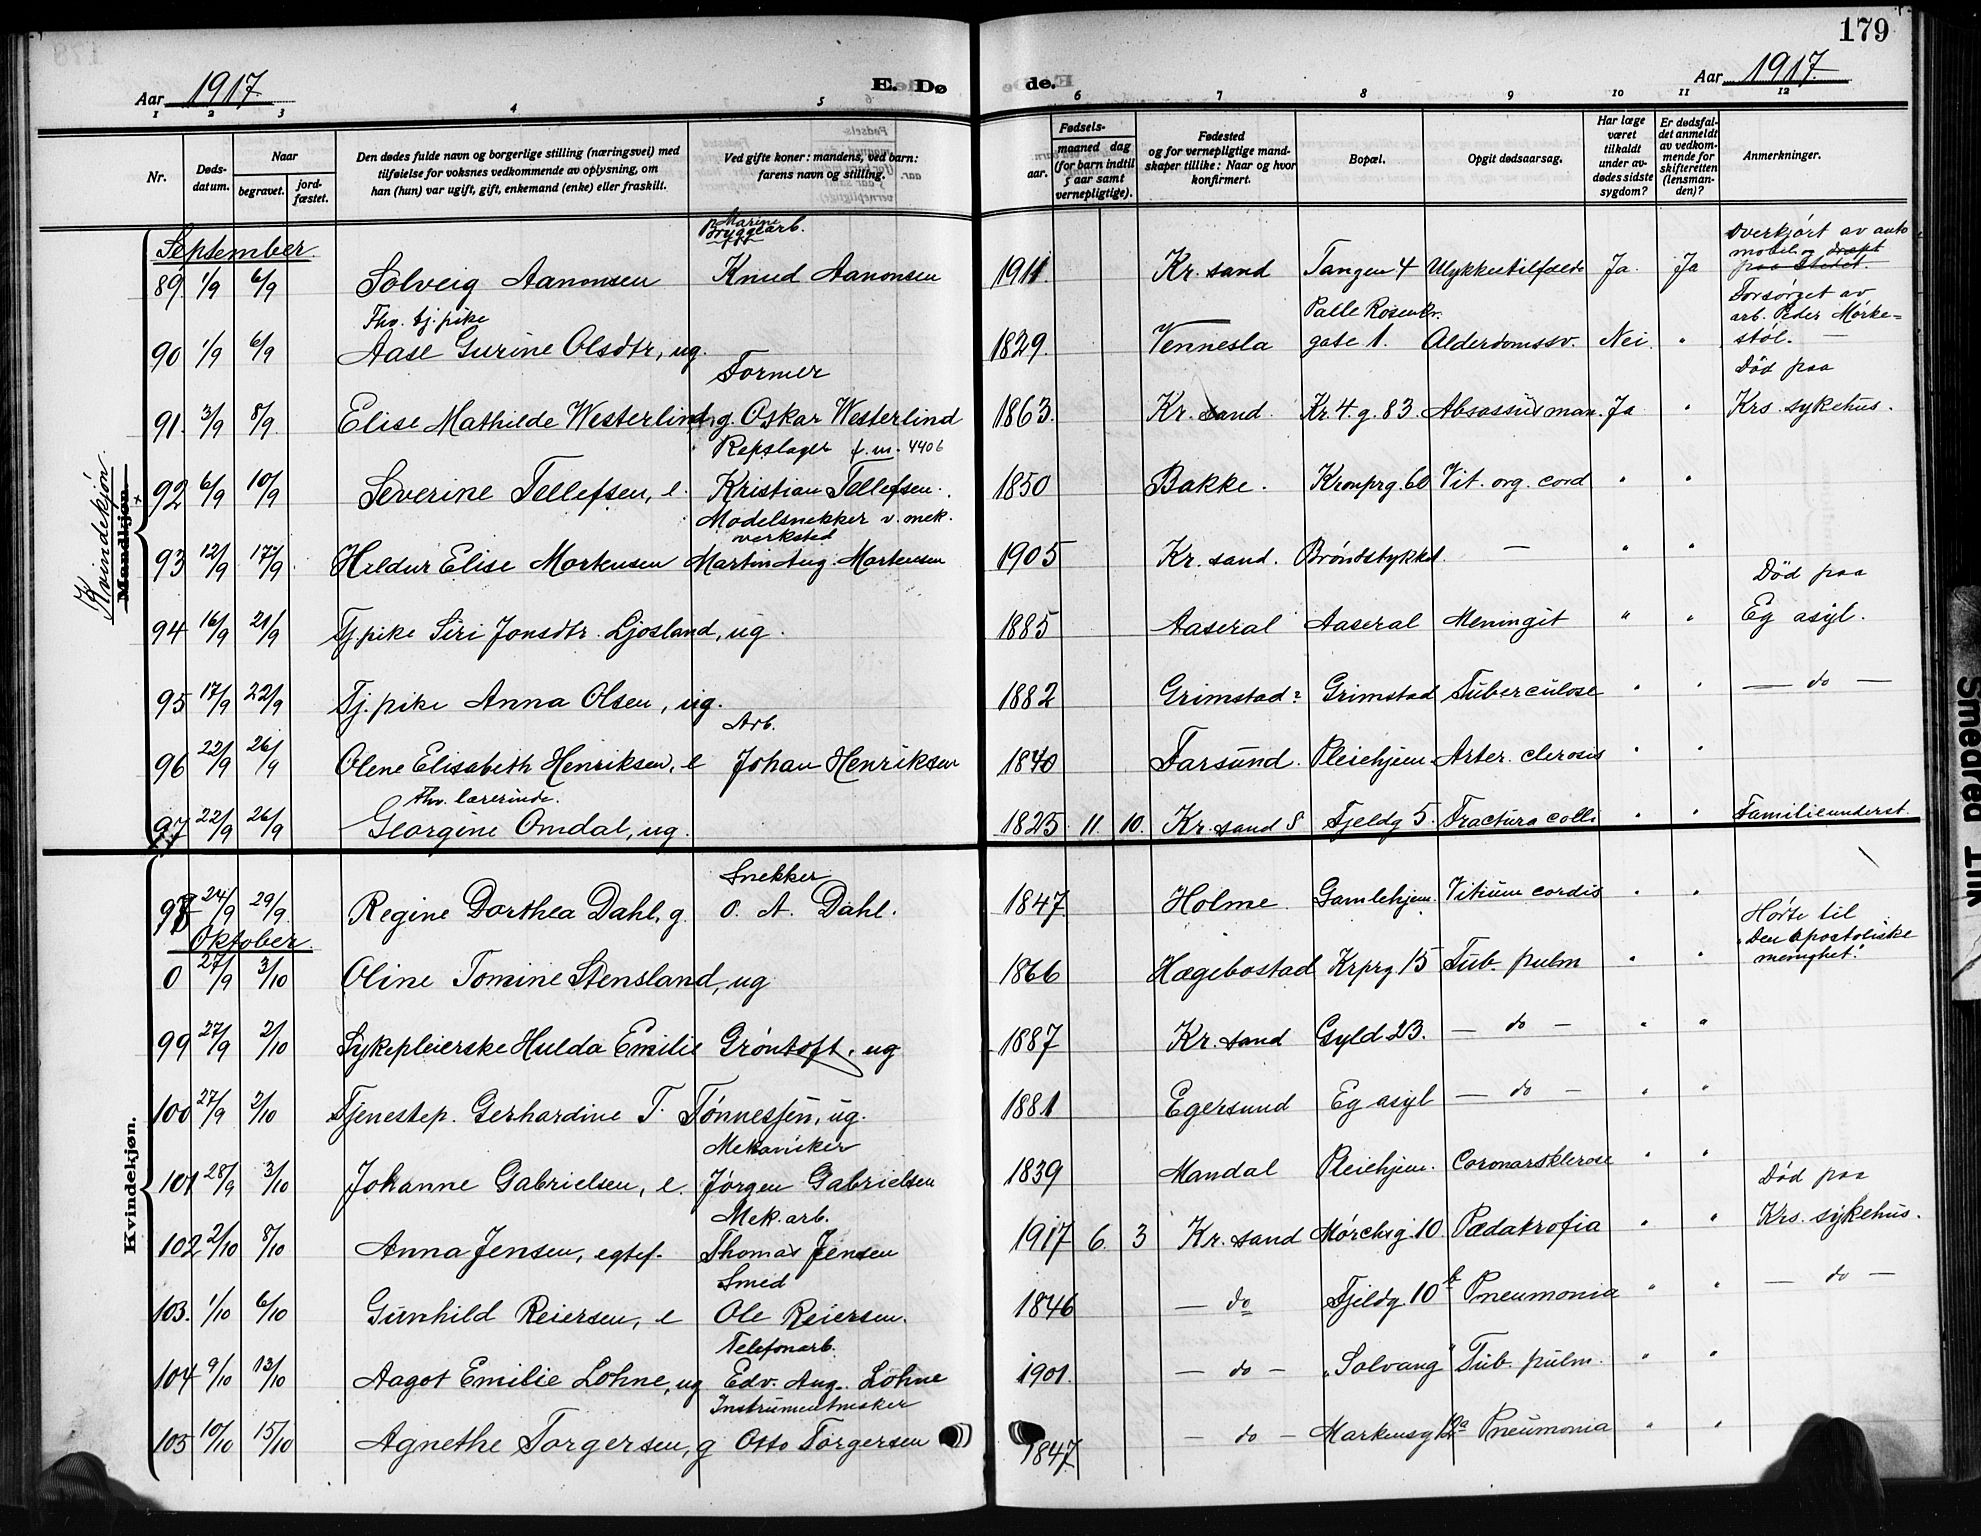 179
Aar 1917.
E. Dø
de.
Aar 1917.
1 2 3 4 5 6 7 8 9 10 11 12
Nr.
Døds-
datum.
Naar
begravet.
jord-
fæstet.
Den dødes fulde navn og borgerlige stilling (næringsvei) med
tilføielse for voksnes vedkommende av oplysning, om
han (hun) var ugift, gift, enkemand (enke) eller fraskilt.
Ved gifte koner: mandens, ved barn:
farens navn og stilling.
Fødsels-
aar.
maaned dag
(for barn indtil
5 aar samt
vernepligtige).
Fødested
og for vernepligtige mand-
skaper tillike: Naar og hvor
konfirmert.
Bopæl.
Opgit dødsaarsag.
Har læge
været
tilkaldt
under av-
dødes sidste
sygdom?
Er dødsfal-
det anmeldt
av vedkom-
mende for
skifteretten
(lensman-
den)?
Anmerkninger.
Kvindekjøn.
Mandkjøn.
Kvindekjøn.
September.
Marine
Bryggearb.
Overkjørt av auto
mobil og dræpt
paa Stedet.
89. 1/9 6/9 Solveig Aanonsen Knud Aanonsen 1911 Kr.sand Tangen 4 Ulykkestilfælde Ja. Ja
Fhv. tj.pike
Palle Rosenkr.
Forsørget av
arb. Peder Mørke=
støl.
90 1/9 6/9 Aase Gurine Olsdtr, ug. 1829. Vennesla gate 1. Alderdomssv. Nei. "
Former
Død paa
91. 3/9 8/9 Elise Mathilde Westerlind, g. Oskar Westerlind 1863. Kr.sand. Kr.4.g.83 Absassus man. Ja " Krs. sykehus.
Repslager f.m. 4406
92 6/9 10/9 Severine Tellefsen, e. Kristian Tellefsen. 1850 Bakke. Kronprg. 60 Vit. org. cord " "
Modelsnekker v. mek.
verksted
93 12/9 17/9 Hildur Elise Mortensen Martin Aug. Mortensen 1905 Kr.sand. Brøndstykket. — " "
Død paa
94 16/9 21/9 Tj.pike Siri Jonsdtr. Ljosland, ug. 1885 Aaseral Aaseral Meningit " " Eg asyl.
95 17/9 22/9 Tj.pike Anna Olsen, ug. 1882 Grimstad? Grimstad Tuberculose " " — do —
Arb.
96 22/9 26/9 Olene Elisabeth Henriksen, e Johan Henriksen 1840 Farsund. Pleiehjem. Arter. clerosis " "
Fhv. lærerinde.
97 22/9 26/9 Georgine Omdal, ug. 1825 11. 10. Kr.sand S Fjeldg 5. Fractura colli " " Familieunderst.
Snekker
98 24/9 29/9. Regine Dorthea Dahl, g. O. A. Dahl. 1847. Holme Gamlehjem. Vitium cordis " "
Oktober.
Hørte til
"Den Apostoliske
menighet".
0 27/9 3/10 Oline Tomine Stensland, ug 1866 Hægebostad Krprg 15 Tub. pulm " "
99 27/9 2/10 Sykepleierske Hulda Emilie Grøntoft. ug 1887 Kr.sand Gyld 23. — do — " "
100 27/9 2/10 Tjenestep. Gerhardine T. Tønnessen, ug. 1881 Egersund Eg asyl — do — " "
Mekaniker
101 28/9 3/10 Johanne Gabrielsen, e. Jørgen Gabrielsen 1839 Mandal Pleiehjem. Coronarsklerose " "
Mek. arb.
Død paa
102 2/10 8/10 Anna Jensen, egtef. Thomas Jensen 1917 6. 3 Kr.sand Mørchsg. 10. Pædatrofia " " Krs. sykehus.
Smed
103. 1/10 6/10 Gunhild Reiersen, e Ole Reiersen. 1846 — do Fjeldg. 10 b Pneumonia " " — do —
Telefonarb.
104 9/10 13/10 Aagot Emilie Lohne, ug Edv. Aug. Lohne 1901. — do — "Solvang" Tub. pulm. " "
Instrumentmaker
105 10/10 15/10 Agnethe Torgersen, g Otto Torgersen 1847. — do — Markensg 12a Pneumonia " "